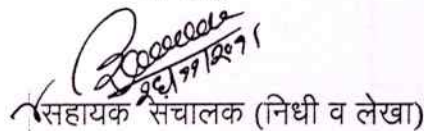 २६/११/२०२१
सहायक संचालक (निधी व लेखा)